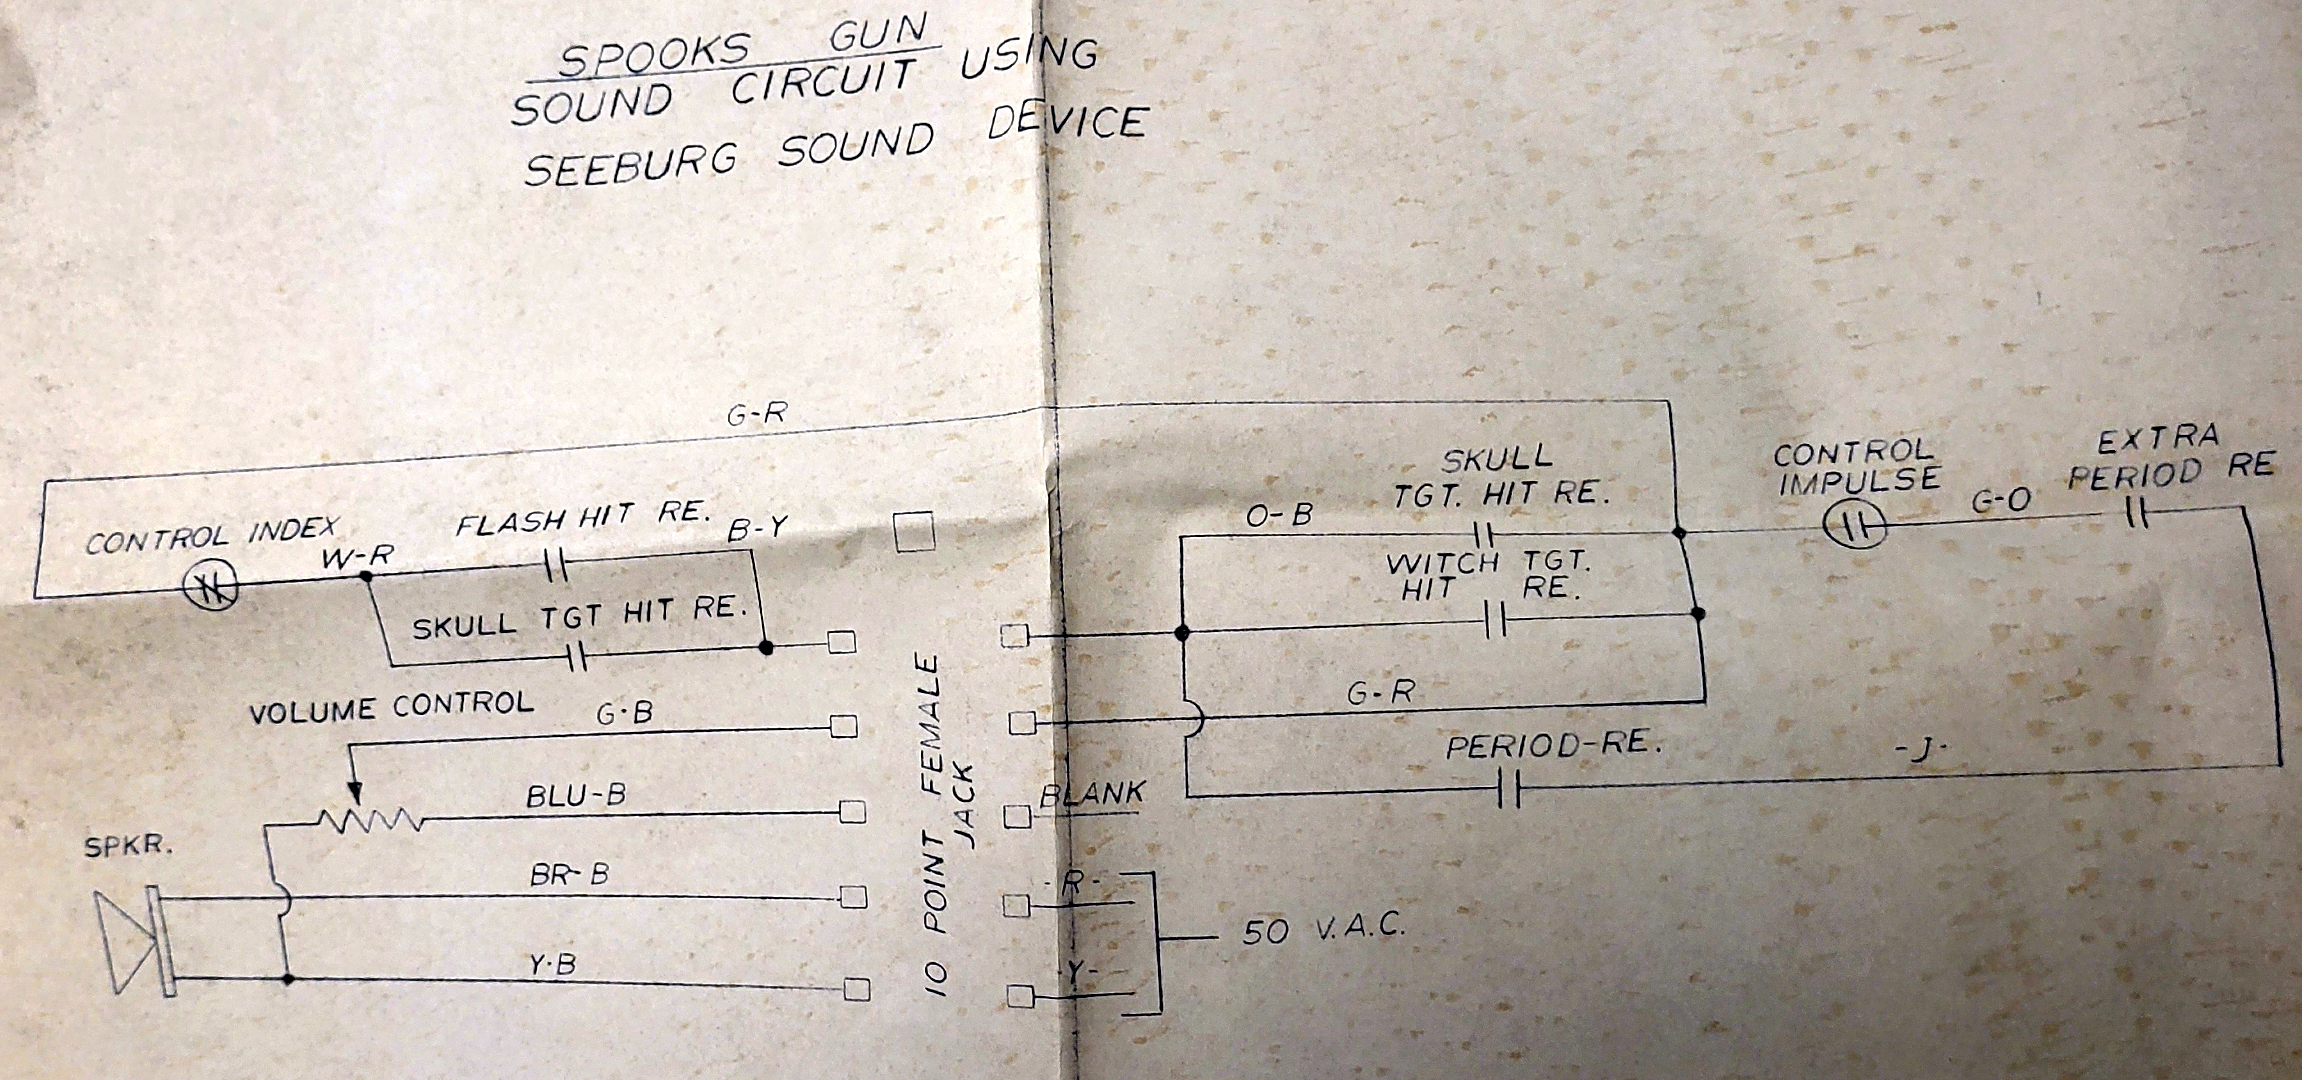 SPOOKS GUN
SOUND CIRCUIT USING
SEEBURG SOUND DEVICE
G-R
CONTROL INDEX
W-R
FLASH HIT RE.
B-Y
SKULL TGT HIT RE.
VOLUME CONTROL
G·B
BLU-B
SPKR.
BR-B
Y·B
10 POINT FEMALE
JACK
O-B
SKULL
TGT. HIT RE.
WITCH TGT.
HIT RE.
CONTROL
IMPULSE
G-O
EXTRA
PERIOD RE
G-R
PERIOD-RE.
-J-
BLANK
-R-
-Y-
50 V.A.C.